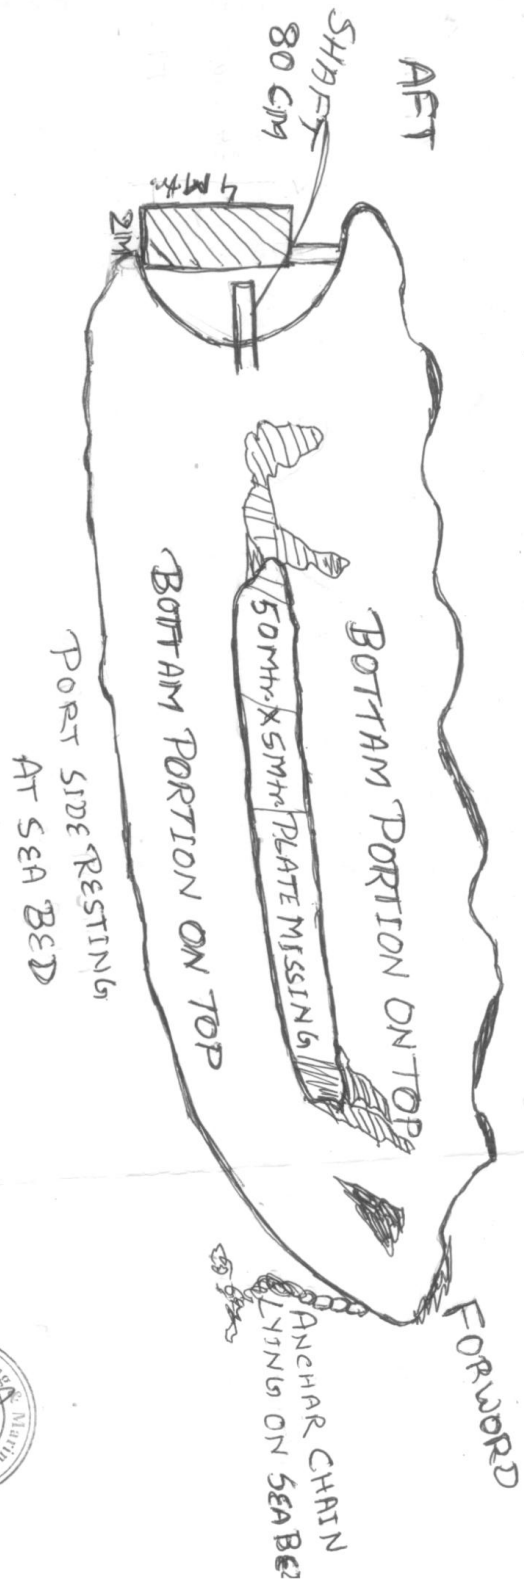 AFT
SHAFT
80 CM
4 Mtr.
2M
BOTTAM PORTION ON TOP
50Mtr. X 5Mtr PLATE MISSING
BOTTAM PORTION ON TOP
PORT SIDE RESTING
AT SEA BED
FORWORD
ANCHAR CHAIN
LYING ON SEA BED
& Marin